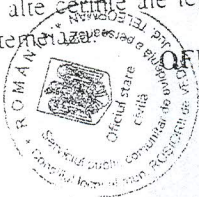 alte cerințe ale le
temeiază.
OFI
ROMÂNIA
Jud. TELEORMAN
Serviciul public comunitar de evidență a persoanelor
Consiliul local al mun. ROȘIORII de VEDE
Oficiul stare
civilă